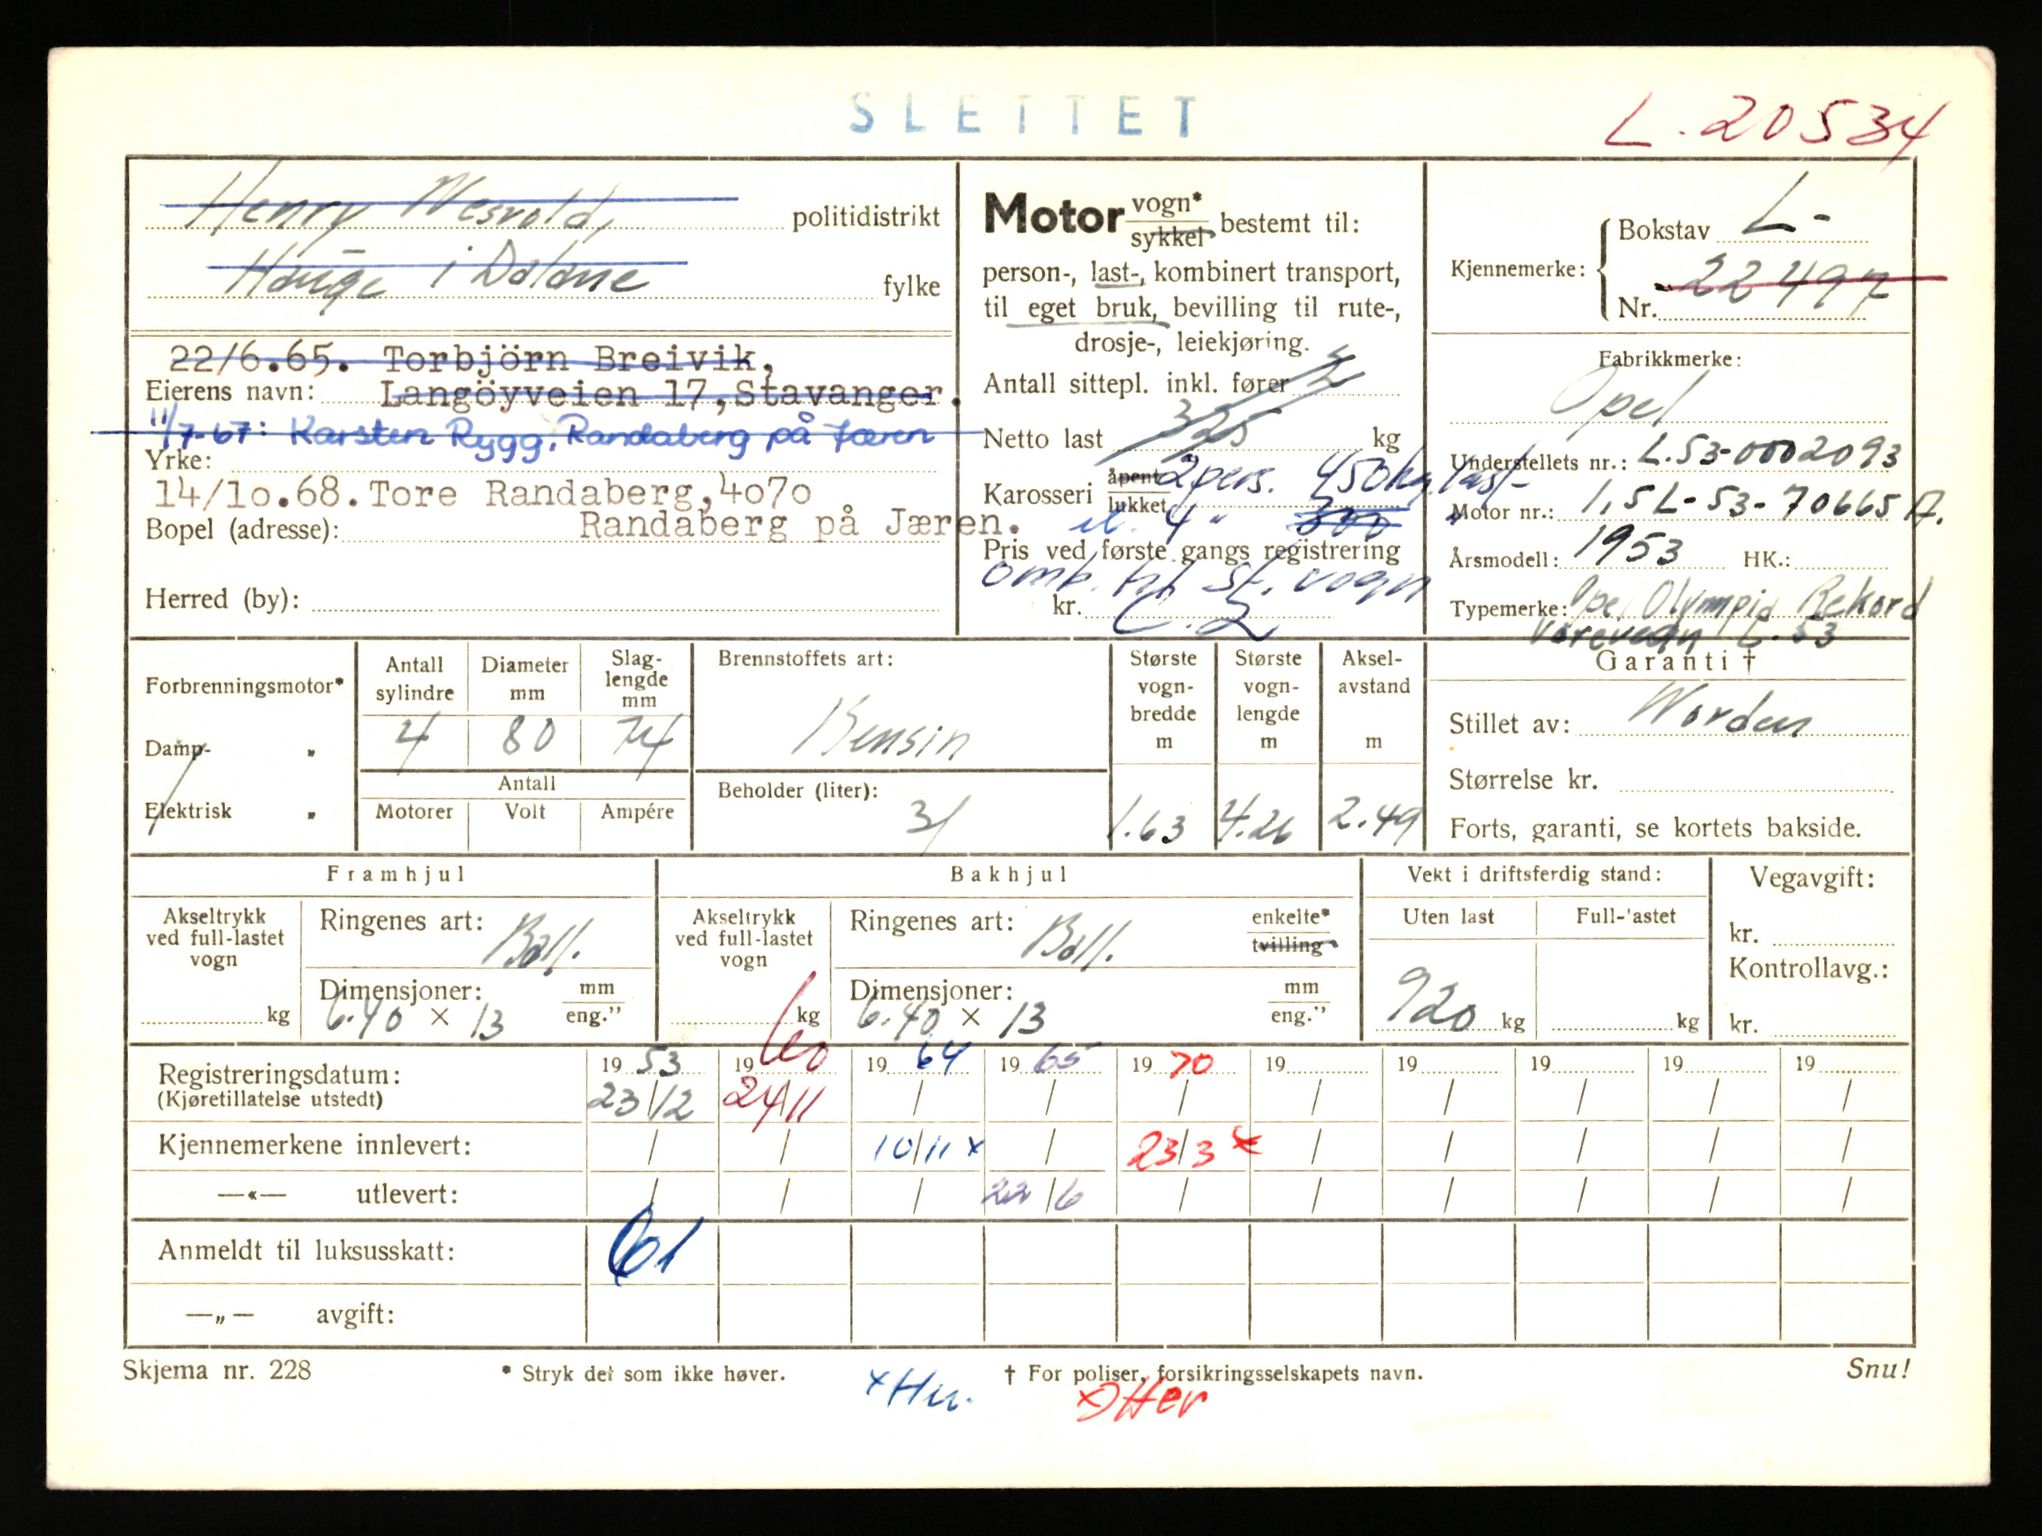 SLETTET
L. 20534
Henry
politidistrikt
Hauge i Dalane
fylke
22/6.65. Torbjörn Breivik,
Eierens navn: Langöyveien 17, Stavanger.
11/7-67: Karsten Rygg, Randaberg på Jæren
Yrke:
14/10.68. Tore Randaberg, 4070
Bopel (adresse): Randaberg på Jæren.
Herred (by):
Motor vogn* sykkel bestemt til:
person-, last-, kombinert transport,
til eget bruk, bevilling til rute-,
drosje-, leiekjøring.
Antall sittepl. inkl. fører 2
Netto last 325 kg
Karosseri åpent lukket 2 pers. 450 kg last
el. 4 " 300 "
Pris ved første gangs registrering
omb. til st. vogn
kr.
Kjennemerke: Bokstav L-
Nr. 22497
Fabrikkmerke:
Opel
Understellets nr.: L.53-0002093
Motor nr.: 1,5L-53-70665 A.
Årsmodell: 1953 HK.:
Typemerke: Opel Olympia Rekord
Varevogn L.53
Forbrenningsmotor*
Damp- „
Elektrisk „
Antall sylindre 4
Diameter mm 80
Slaglengde mm 74
Antall
Motorer Volt Ampére
Brennstoffets art:
Bensin
Beholder (liter):
31
Største vogn-bredde m 1.63
Største vogn-lengde m 4.26
Aksel-avstand m 2.49
Garanti †
Stillet av: Norden
Størrelse kr.
Forts, garanti, se kortets bakside.
Framhjul
Akseltrykk ved full-lastet vogn
kg
Ringenes art: Ball.
Dimensjoner: mm eng."
6.40 × 13
Bakhjul
Akseltrykk ved full-lastet vogn
kg
Ringenes art: Ball. enkelte* tvilling
Dimensjoner: mm eng."
6.40 × 13
Vekt i driftsferdig stand:
Uten last Full-'astet
920 kg kg
Vegavgift:
kr.
Kontrollavg.:
kr.
Registreringsdatum: 19 53 19 60 19 64 19 65 19 70 19 19 19 19 19
(Kjøretillatelse utstedt) 23/12 24/11 / / / / / / / /
Kjennemerkene innlevert: / / 10/11 x / 23/3 x / / / / /
—«— utlevert: / / / 22/6 / / / / / /
Anmeldt til luksusskatt: 61
—„— avgift:
Skjema nr. 228
* Stryk det som ikke høver.
† For poliser, forsikringsselskapets navn.
Snu!